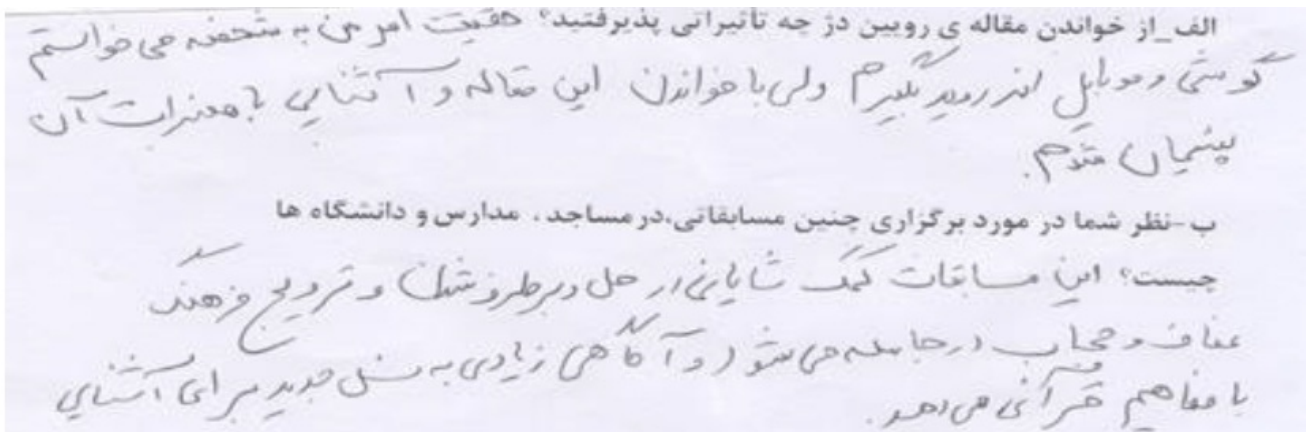 الف_از خواندن مقاله ی رویین دژ چه تأثیراتی پذیرفتید؟ حقیقت امر من به شخصه می خواستم
گوشی و موبایل اندروید بگیرم ولی با خواندن این مقاله و آشنایی با مضرات آن
پشیمان شدم.
ب-نظر شما در مورد برگزاری چنین مسابقاتی،در مساجد، مدارس و دانشگاه ها
چیست؟ این مسابقات کمک شایانی در حل و برطرف شدن و ترویج فرهنگ
عفاف و حجاب در جامعه می شود و آگاهی زیادی به نسل جدید برای آشنایی
با مفاهیم قرآنی می دهد.